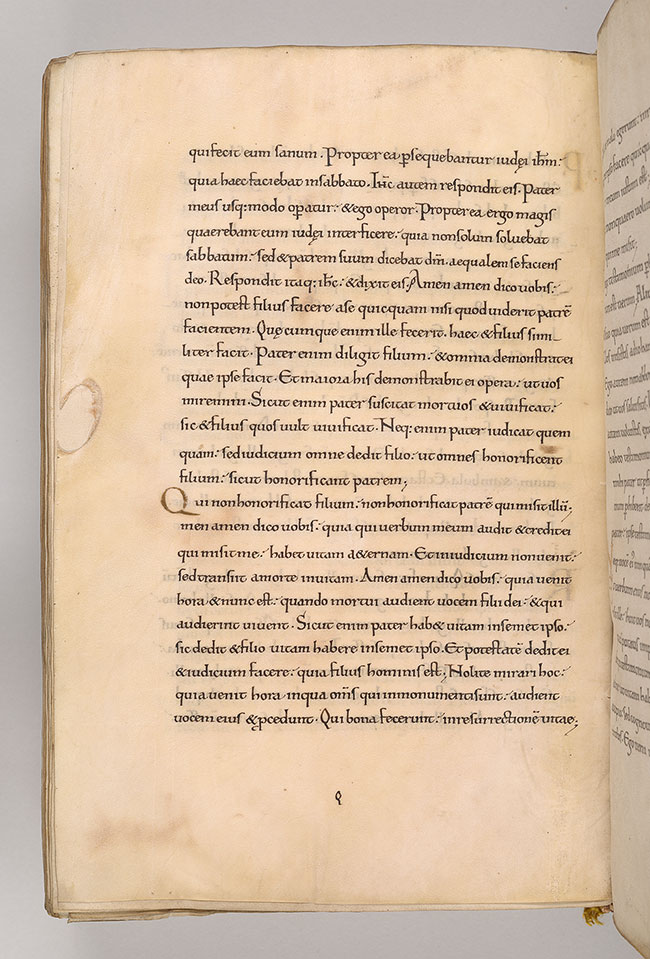 qui fecit eum sanum. Propter ea psequebantur iudęi ihm:
quia haec faciebat insabbato. Ihc autem respondit eis. Pater
meus usq: modo opatur: & ego operor. Propter ea ergo magis
quaerebant eum iudęi interficere: quia nonsolum soluebat
sabbatum: sed & patrem suum dicebat dm. aequalem se faciens
deo. Respondit itaq: ihc: & dixit eis. Amen amen dico uobis:
non potest filius facere ase quicquam nisi quod uiderit patrē
facientem. Quęcumque enim ille fecerit. haec & filius simi_
liter facit. Pater enim diligit filium: & omnia demonstrat ei
quae ipse facit. Et maiora his demonstrabit ei opera: ut uos
miremini. Sicut enim pater suscitat mortuos & uiuificat:
sic & filius quos uult uiuificat. Neq: enim pater iudicat quem
quam: sed iudicium omne dedit filio: ut omnes honorificent
filium: sicut honorificant patrem;
Qui nonhonorificat filium: nonhonorificat patrē qui misit illū;
men amen dico uobis: quia qui uerbum meum audit & credit ei
qui misit me: habet uitam a&ernam. Et iniudicium non uenit:
sed transiit amorte inuitam. Amen amen dico uobis: quia uenit
hora & nunc est: quando mortui audient uocem filii dei: & qui
audierint uiuent. Sicut enim pater hab& uitam insemet ipso:
sic dedit & filio uitam habere insemet ipso. Et potestatē dedit ei
& iudicium facere: quia filius hominis est; Nolite mirari hoc:
quia uenit hora inqua om̄s qui inmonumentis sunt: audient
uocem eius & pcedunt. Qui bona fecerunt: inresurrectionē uitae;